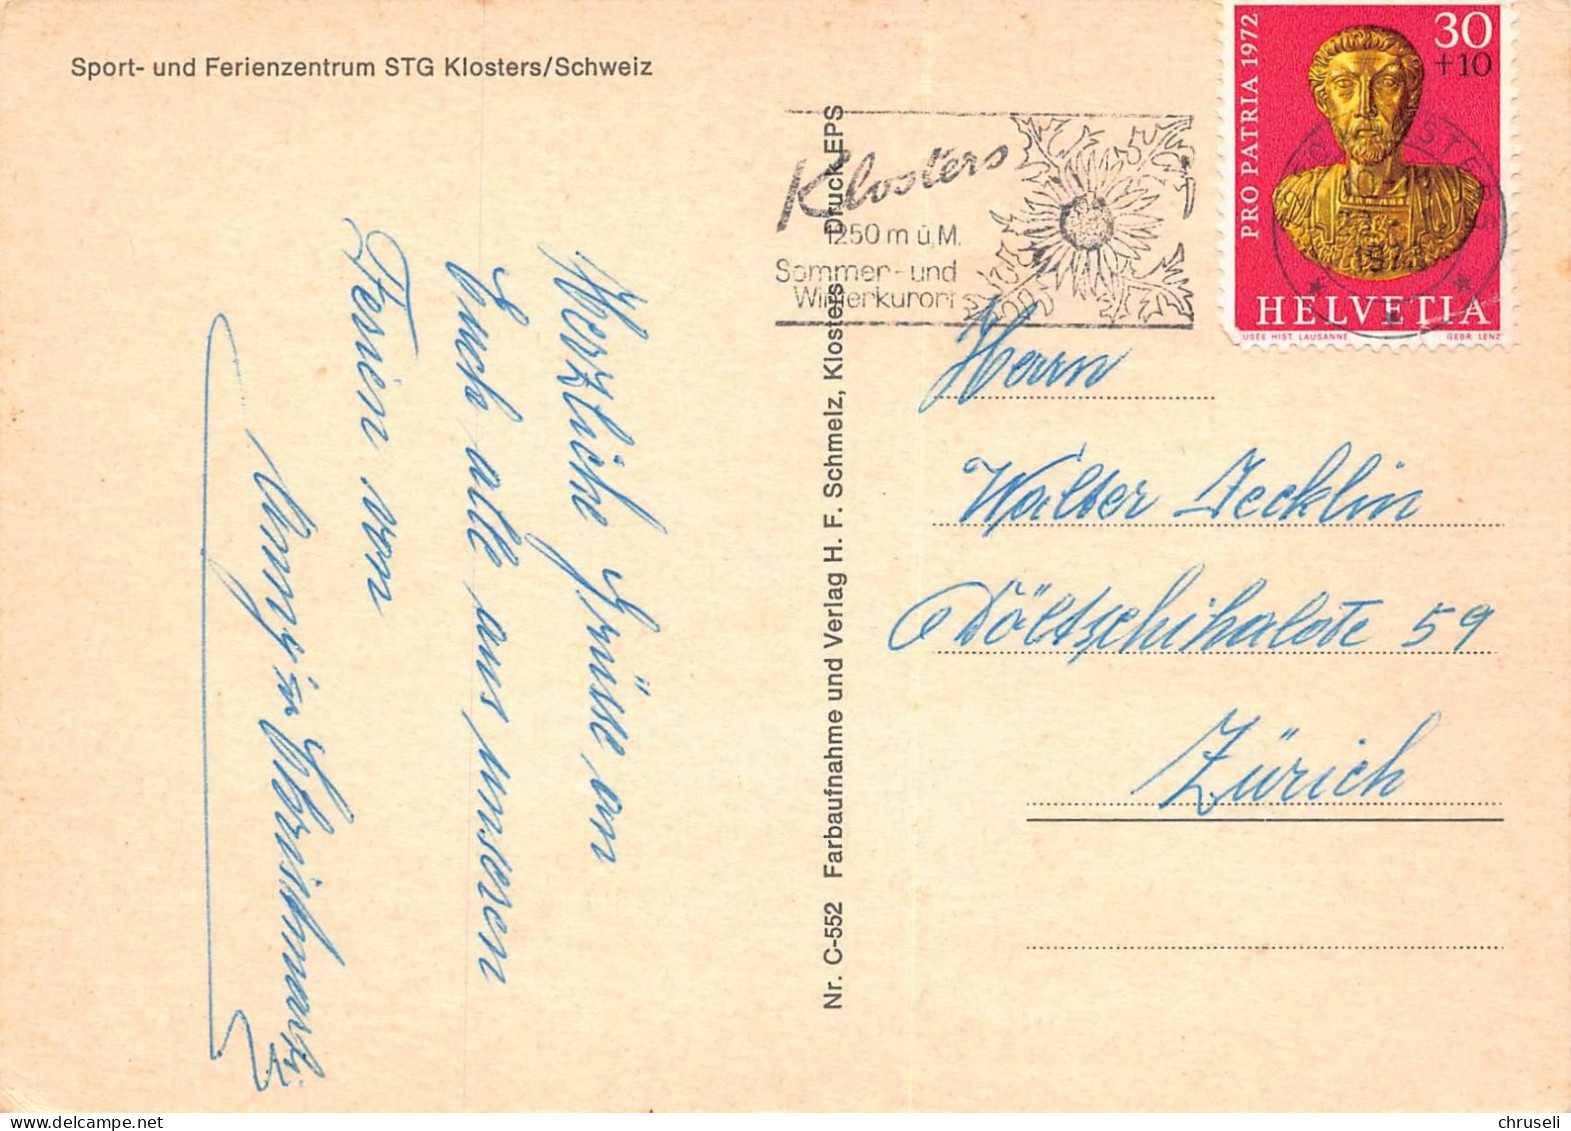 Sport- und Ferienzentrum STG Klosters/Schweiz
Herzliche Grüsse an
Euch alle aus unseren
Ferien von
Nr. C-552 Farbaufnahme und Verlag H. F. Schmelz, Klosters Druck EPS
Klosters
1250 m ü.M.
Sommer- und
Winterkurort
PRO PATRIA 1972
30
+10
HELVETIA
USÉE HIST. LAUSANNE
GEBR. LENZ
Herrn
Walter Jecklin
Döltschihalde 59
Zürich
chruseli